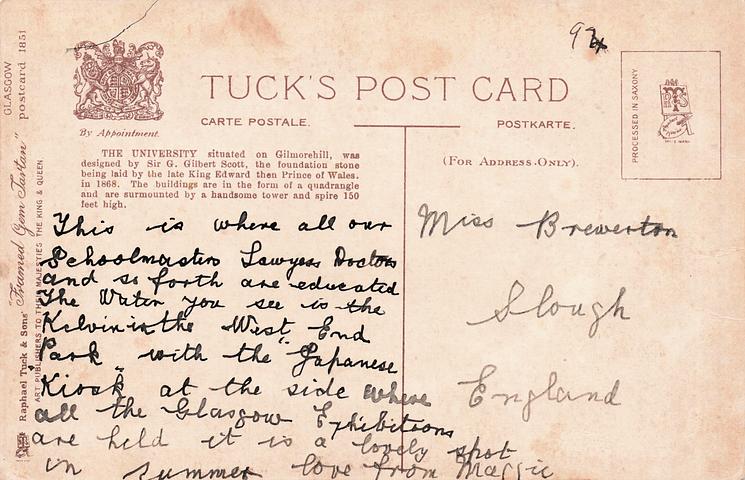 GLASGOW
postcard 1851
"Framed Gem Tartan"
Raphael Tuck & Sons'
ART PUBLISHERS TO THEIR MAJESTIES THE KING & QUEEN
By Appointment.
TUCK'S POST CARD
CARTE POSTALE.
POSTKARTE.
(FOR ADDRESS ONLY).
PROCESSED IN SAXONY
THE UNIVERSITY situated on Gilmorehill, was
designed by Sir G. Gilbert Scott, the foundation stone
being laid by the late King Edward then Prince of Wales.
in 1868. The buildings are in the form of a quadrangle
and are surmounted by a handsome tower and spire 150
feet high.
This is where all our
Schoolmasters Lawyers Doctors
and so forth are educated
The Water you see is the
Kelvin in the West End
Park with the "Japanese
Kiosk" at the side where
all the Glasgow Exhibitions
are held it is a lovely spot
in summer love from Maggie
Miss Brewerton
Slough
England